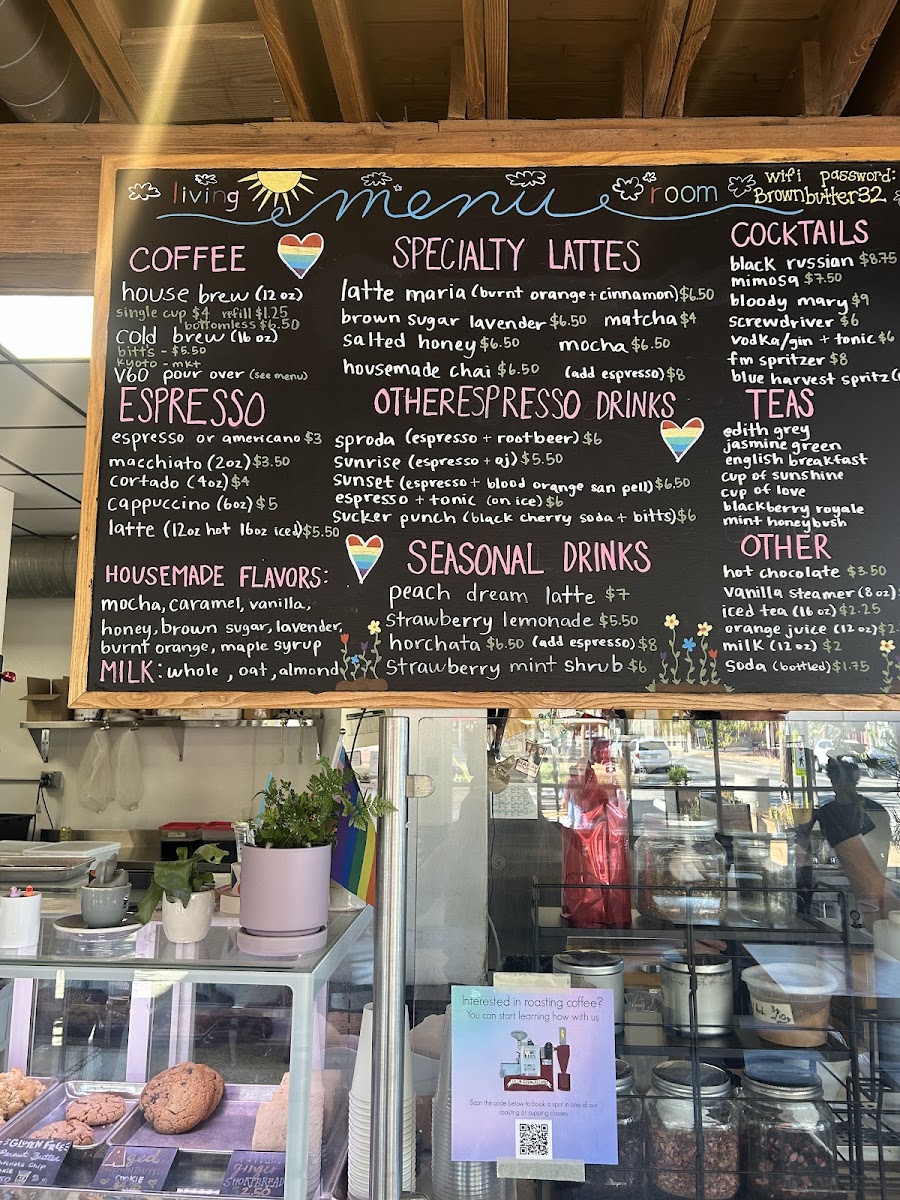 living menu room
wifi password:
Brownbutter32
COFFEE
house brew (12 oz)
single cup $4 refill $1.25
bottomless $6.50
cold brew (16 oz)
bitts - $5.50
kyoto - mkt
V60 pour over (see menu)
ESPRESSO
espresso or americano $3
macchiato (2oz) $3.50
cortado (4oz) $4
cappuccino (6oz) $5
latte (12oz hot 16oz iced) $5.50
HOUSEMADE FLAVORS:
mocha, caramel, vanilla,
honey, brown sugar, lavender,
burnt orange, maple syrup
MILK: whole, oat, almond
SPECIALTY LATTES
latte maria (burnt orange + cinnamon) $6.50
brown sugar lavender $6.50 matcha $4
salted honey $6.50 mocha $6.50
housemade chai $6.50 (add espresso) $8
OTHER ESPRESSO DRINKS
sproda (espresso + rootbeer) $6
sunrise (espresso + oj) $5.50
sunset (espresso + blood orange san pell) $6.50
espresso + tonic (on ice) $6
sucker punch (black cherry soda + bitts) $6
SEASONAL DRINKS
peach dream latte $7
strawberry lemonade $5.50
horchata $6.50 (add espresso) $8
strawberry mint shrub $6
COCKTAILS
black russian $8.75
mimosa $7.50
bloody mary $9
screwdriver $6
vodka/gin + tonic $6
fm spritzer $8
blue harvest spritz
TEAS
edith grey
jasmine green
english breakfast
cup of sunshine
cup of love
blackberry royale
mint honeybush
OTHER
hot chocolate $3.50
vanilla steamer (8 oz)
iced tea (16 oz) $2.25
orange juice (12 oz) $2.
milk (12 oz) $2
soda (bottled) $1.75
Interested in roasting coffee?
You can start learning how with us
Scan the code below to book a spot in one of our
roasting or cupping classes
GLUTEN FREE
Peanut Butter
Chip
Aged
COOKIE
Ginger
SHORTBREAD
2.50